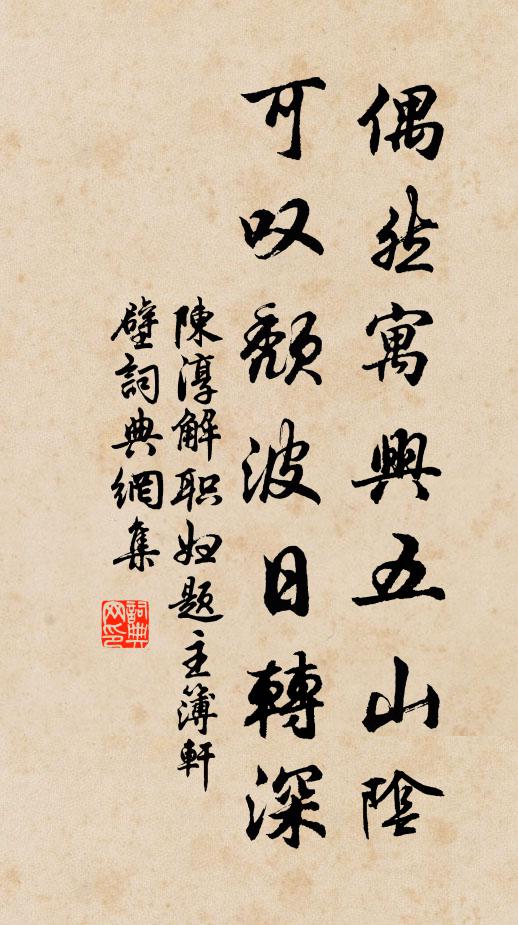 偶然寓興五山陰
可叹頹波日轉深
陳淳解职题主簿軒
壁詞典網集
詞典网印